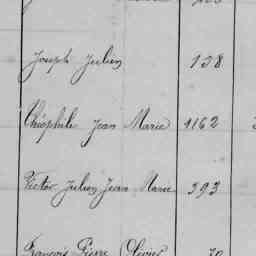 Joseph Julien 138
Théophile Jean Marie 1162
Victor Julien Jean Marie 393
François Pierre Olivier 70